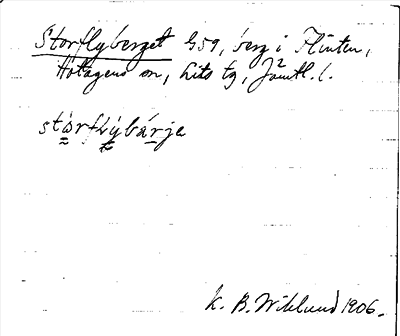 Storflyberget G59, berg i Flinten,
Hotagens sn, Lits tg, Jämtl. l.
stòrflýbárje
K. B. Wiklund 1906.